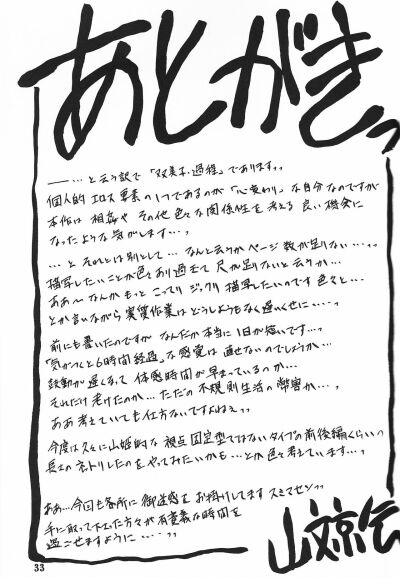 あとがきっ
――…と云う訳で「双美子・過程」であります,,
個人的エロス要素の1つであるのが「心変わり」な自分なのですが
本作は 相姦や その他色々な関係性を考える 良い機会に
なったような気がします…,
…と それとは別として… なんと云うかページ数が足りない…,,
描写したいことが色々あり過ぎて 尺が足りないと云うか…
ああ〜なんか もっと こってり ジックリ 描写したいのです 色々と…
とか言いながら 実質作業は どうしようもなく遅いくせに…,
前にも書いたのですが なんだか本当に 1日が短いです…,
「気がつくと6時間経過」な感覚は 直せないのでしょうか…
鼓動が遅くなって 体感時間が早まっているのか…
それだけ老けたのか…ただの 不規則生活の弊害か…,
ああ考えていても仕方ないですよねぇ,,
今度は久々に山姫的な 視点固定型ではないタイプの前後編くらいの
長さの ネトリしたのを やってみたいかも…とか色々考えています…,
ああ…今回も各所に 御迷惑を お掛けしてます スミマセン,,
手に取って下さった方々が有意義な時間を
過ごせますように…,,
山文京伝
33